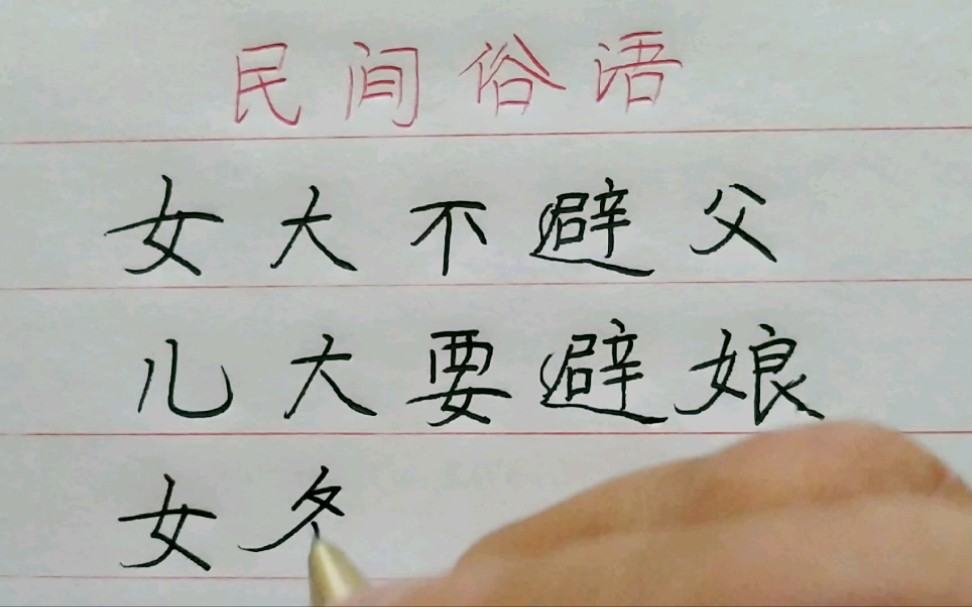 民间俗语
女大不避父
儿大要避娘
女